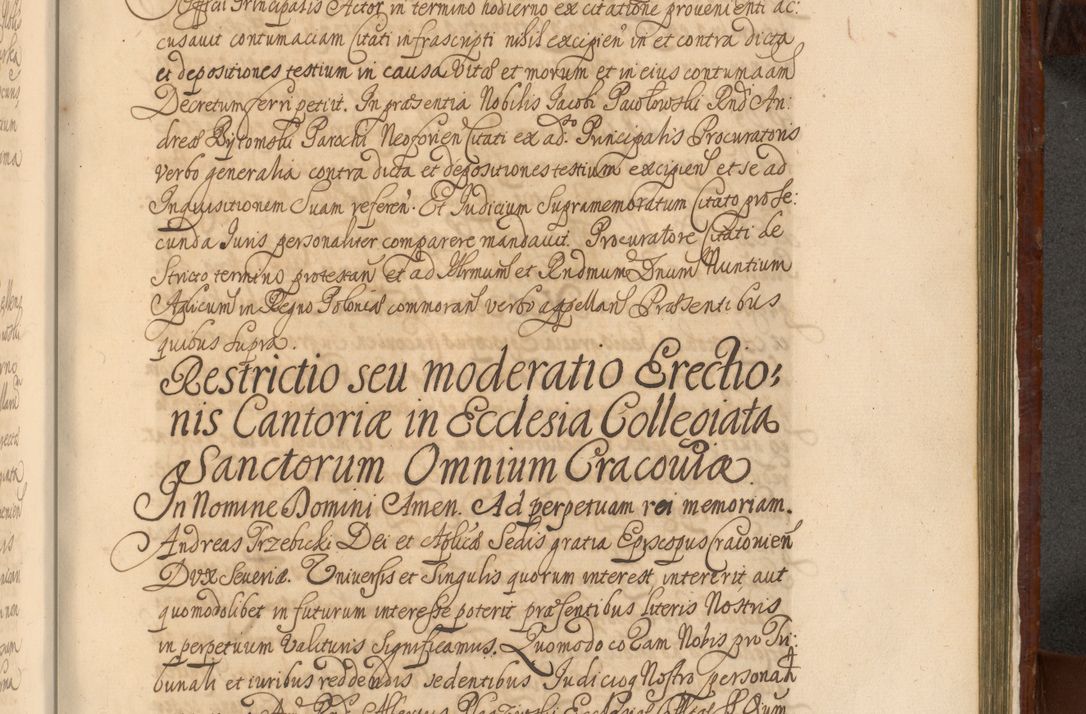 Officii Principalis Actor in termino hodierno ex citatione provenienti ac:
cusavit contumaciam Citati infrascripti nihil excipien̄ in et contra dicta
et depositiones testium in causa vitæ et morum et in eius contumaam
Decretum ferri petiit. In præsentia Nobilis Jacobi Pawłowski Rnd̄ An:
dreæ Bytomski Parochi Neoforien̄ Citati ex ad.to Principalis Procuratoris
verbo generalia contra dicta et depositiones testium excipien̄ et se ad
Inquisitionem Suam referen̄. Et Judicium Supramemoratum Citato pro Se:
cunda Juris personaliter comparere mandavit. Procuratore Citati de
Stricto termino protestan̄ et ad Illrmum et Rndmum Dnum Nuntium
Aplicum in Regno Poloniæ commoran̄ verbo appellan̄ Præsentibus
quibus supra.
Restrictio seu moderatio Erectio:
nis Cantoriæ in Ecclesia Collegiata
Sanctorum Omnium Cracoviæ
In Nomine Domini Amen. Ad perpetuam rei memoriam.
Andreas Trzebicki Dei et Aplicæ Sedis gratia Episcopus Cracovien̄
Dux Severiæ. Universis et Singulis quorum interest intererit aut
quomodolibet in futurum interesse poterit præsentibus literis Nostris
in perpetuum valituris Significamus. Quomodo coram Nobis pro Tri:
bunali et iuribus reddendis sedentibus Judicioq Nostro personali